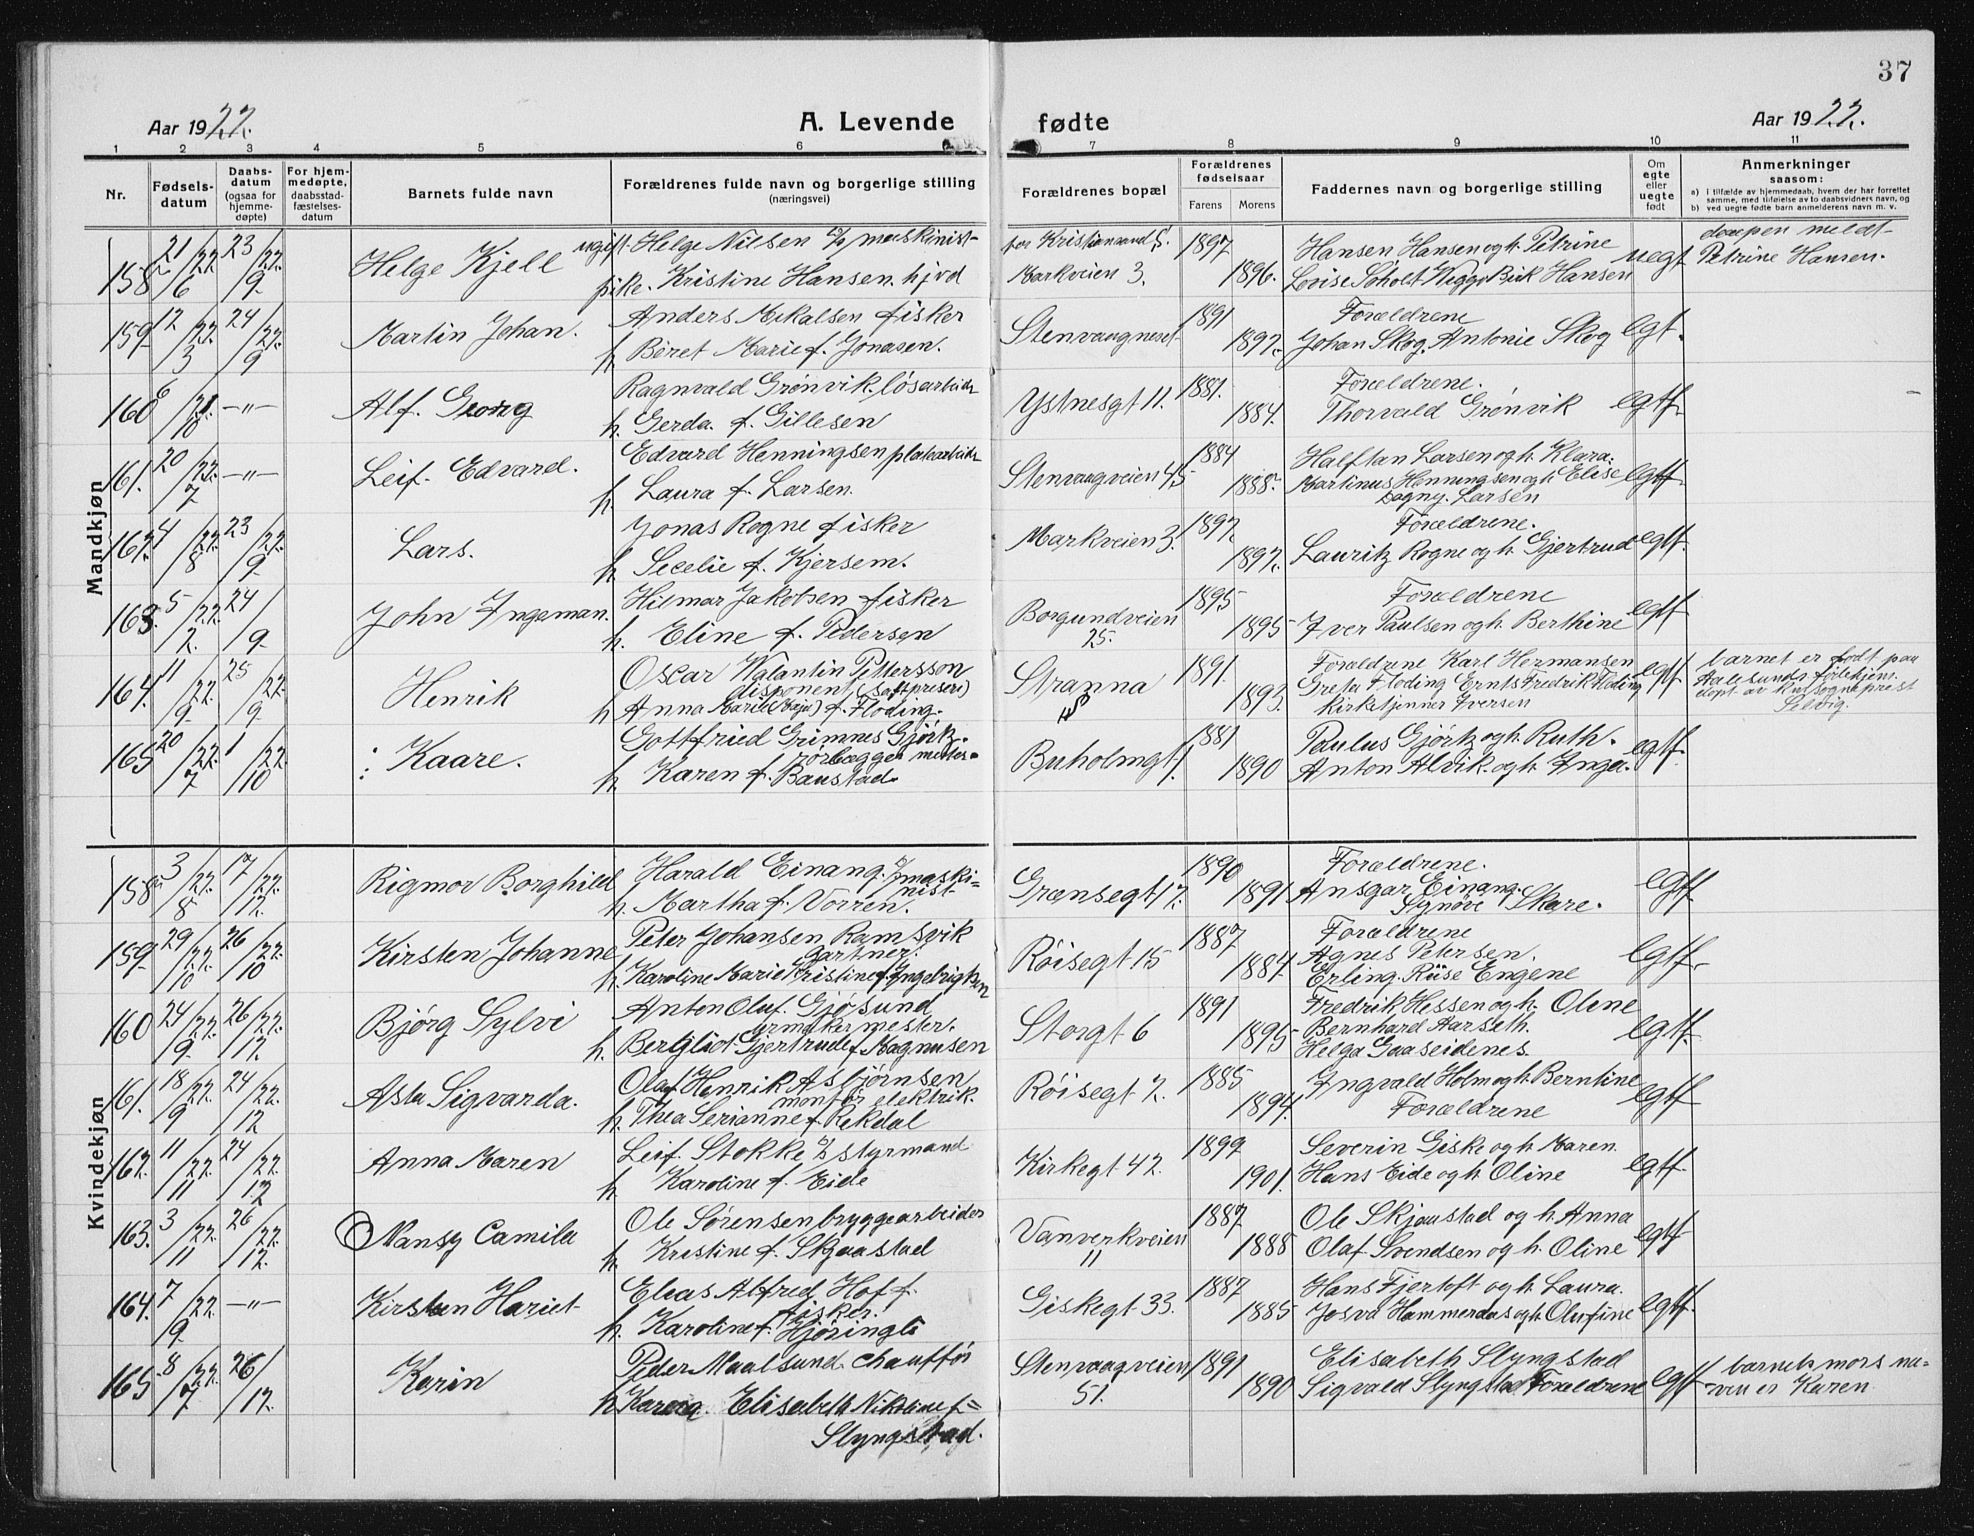 37
Aar 1922.
A. Levende
fødte
Aar 1922.
1 2 3 4 5 6 7 8 9 10 11
Nr.
Fødsels-
datum
Daabs-
datum
(ogsaa for
hjemme-
døpte)
For hjem-
medøpte,
daabsstad-
fæstelses-
datum
Barnets fulde navn
Forældrenes fulde navn og borgerlige stilling
(næringsvei)
Forældrenes bopæl
Forældrenes
fødselsaar
Farens Morens
Faddernes navn og borgerlige stilling
Om
egte
eller
uegte
født
Anmerkninger
saasom:
a) i tilfælde av hjemmedaab, hvem der har forrettet
samme, med tilføielse av to daabsvidners navn, og
b) ved uegte fødte barn anmelderens navn m. v.
Mandkjøn
158 21/6 22 23/9 22. Helge Kjell
ugift Helge Nilsen maskinist
pike. Kristine Hansen. hjvd
for Kristiansund S. 1897
Markveien 3. 1896.
Hansen Hansen og h. Petrine
Lovise Søholt Wiggo Birk Hansen
uegt
daapen meldt
Petrine Hansen.
159 12/3 22. 24/9 22. Martin Johan.
Anders Mikalsen fisker
h. Beret Marie f. Jonasen.
Stenvaagneset 1891 1897.
Forældrene
Johan Skog. Antonie Skog
egt.
160 6/10 21. —"— Alf. Georg
Ragnvald Grønvik. løsarbeider
h. Gerda. f. Gillesen
Ystnesgt 11. 1881. 1884.
Forældrene.
Thorvald Grønvik
egtf.
161. 20/7 22. —"— Leif. Edvard.
Edvard Henningsen platearbeider
h. Laura f. Larsen.
Stenvaagveien 45 1884 1888.
Halftan Larsen og h. Klara.
Martinus Henningsen og h. Elise
Dagny. Larsen
egtf
162. 4/8 22. 23/9 22. Lars.
Jonas Rogne fisker
h. Secelie f. Kjersem.
Markveien 3. 1897. 1897.
Forældrene.
Lauritz Rogne og h. Gjertrud
egtf.
163. 5/2. 22. 24/9. John Ingeman.
Hilmar Jakobsen fisker
h. Eline f. Pedersen
Borgundveien
25. 1895 1895
Forældrene
Iver Paulsen og h. Berthine
egtf
164. 11/9 22. 25/9 22. Henrik
Oscar Walantin Pettersson
disponent (saftpreseri)
h Anna Marie (Maja) f. Floding.
Stranna
43 1891. 1893.
Forældrene Karl Hermansen
Greta Floding Ernts Fredrik Floding
Kirketjenner Iversen
egtf
barnet er født paa
Aalesunds fødehjem.
døpt av Ressogneprest
Selvig.
165 20/7 22. 1/10 22. Kaare.
Gottfried Grimnes Gjørtz.
rørlegger mester.
h. Karen f. Baustad.
Buholmgt 1. 1881 1890
Paulus Gjørtz og h. Ruth.
Anton Alvik. og h. Inga.
egtf.
Kvindekjøn
158 3/8 22. 17/12. 22. Rigmor Borghild
Harald Einang. maski-
nist
h. Martha f. Vorren.
Grænsegt 17. 1890 1891
Forældrene.
Ansgar Einang.
Synøve Skare.
egtf
159 29/10 22. 26/10 22. Kirsten Johanne
Peter Johansen Ramsvik
gartner.
h. Karoline Marie Kristine f. Ingebrigtsen
Røisegt 15 1887 1884
Forældrene
Agnes Petersen.
Erling. Riise Engene
egtf.
160 24/9 22. 26/12. 22. Bjørg Sylvi
Anton Oluf. Gjøsund
urmaker mester.
h. Bergliot Gjertrude f Magnusen
Storgt 6 1891 1895
Fredrik Hessen og h. Oline
Bernhard Aarseth.
Helga Gaaseidenes.
egtf.
161. 18/9 22. 24/12 22. Asta Sigvarda.
Olaf Henrik Asbjørnsen
montør elektrik.
h. Thea Serianne f. Rekdal
Røisegt 2. 1885 1894.
Ingvald Holm og h. Berntine
Forældrene
egtf
162. 11/11 22. 24/12 22. Anna Maren
Leif. Stokke styrmand
h Karoline f. Eide
Kirkegt 42 1899 1901.
Severin Giske og h. Maren.
Hans Eide og h. Oline
egtf.
163. 3/11 22. 26/12. 22. Nansy Camila
Ole Sørensen bryggearbeider
h. Kristine f. Skjaastad
Vanverkveien
11 1887. 1888
Ole Skjaastad og h. Anna
Olaf Svendsen og h. Oline
egtf
164. 7/9. 22. —"— Kirsten Hariet
Elias Alfred Hoff.
fisker.
h. Karoline f. Hjøringli
Giskegt 33. 1887 1885
Hans Fjertoft og h. Laura.
Josva Hammerdas og h. Olufine
egtf.
165 8/7 22. 26/12. Karin
Peder Maalsund chauffør
h Karen. Elisabeth Nikoline f=
Slyngstad.
Stenvaagveien
51. 1891 1890
Elisabeth Slyngstad
Sigvald Slyngstad Forældrene
egtf
barnets mors na-
ven er Karen